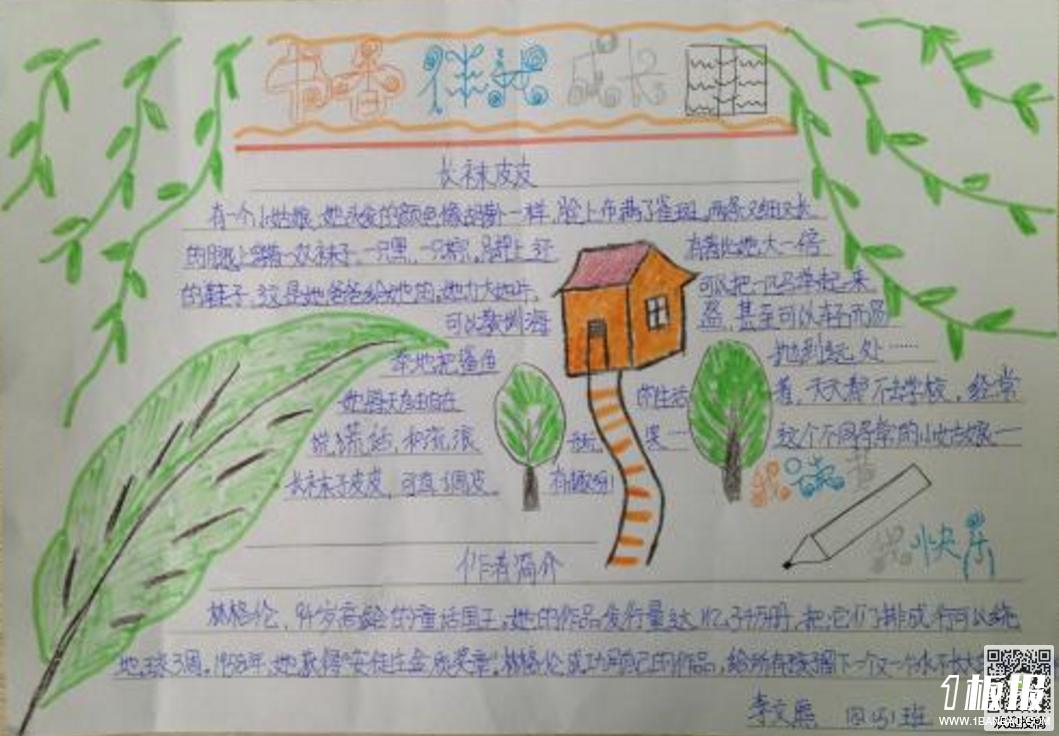 书香伴我成长
长袜皮皮
有一个小姑娘,她头发的颜色像胡萝卜一样,脸上布满了雀斑,两条又细又长
的腿上穿着一双袜子,一只黑,一只棕,脚上还有着比她大一倍
的鞋子,这是她爸爸给她的。她力大如牛,可以把一匹马举起来,
可以教训海盗,甚至可以轻而易
举地把鲨鱼抛到远处……
她每天自由自在的生活着,天天都不去学校,经常
说谎话,和流浪
这个不同寻常的小姑娘一
长袜子皮皮,可真调皮有趣呀!
我读书
我快乐
作者简介
林格伦,94岁高龄的童话国王。她的作品发行量达
万册,把它们排成行可以绕
地球3周。1958年,她获得"安徒生金质奖章"。林格伦成功用自己的作品,给所有孩
下一个又一个永不
李文熙 四(5)班
1板报
WWW.1BANBAO.COM
欢迎投稿